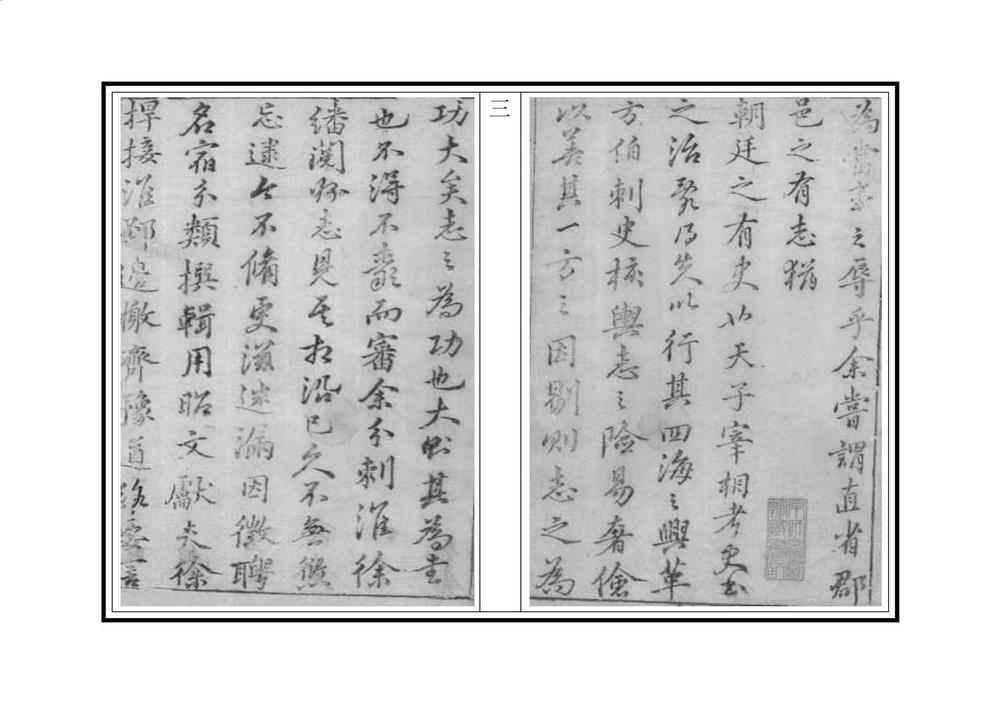 為當世之辱乎余嘗謂直省郡
邑之有志猶
朝廷之有史也天子宰相考史書
之治亂得失以行其四海之興革
方伯刺史核輿志之險易奢儉
以善其一方之因剔則志之為
三
功大矣志之為功也大則其為書
也不得不嚴而審余分刺淮徐
繙閱郡志見其相沿已久不無
忘逮今不脩更滋迷漏因徵聘
名宿分類撰輯用昭文獻夫徐
捍接淮鄆邊撤齊豫道路要害